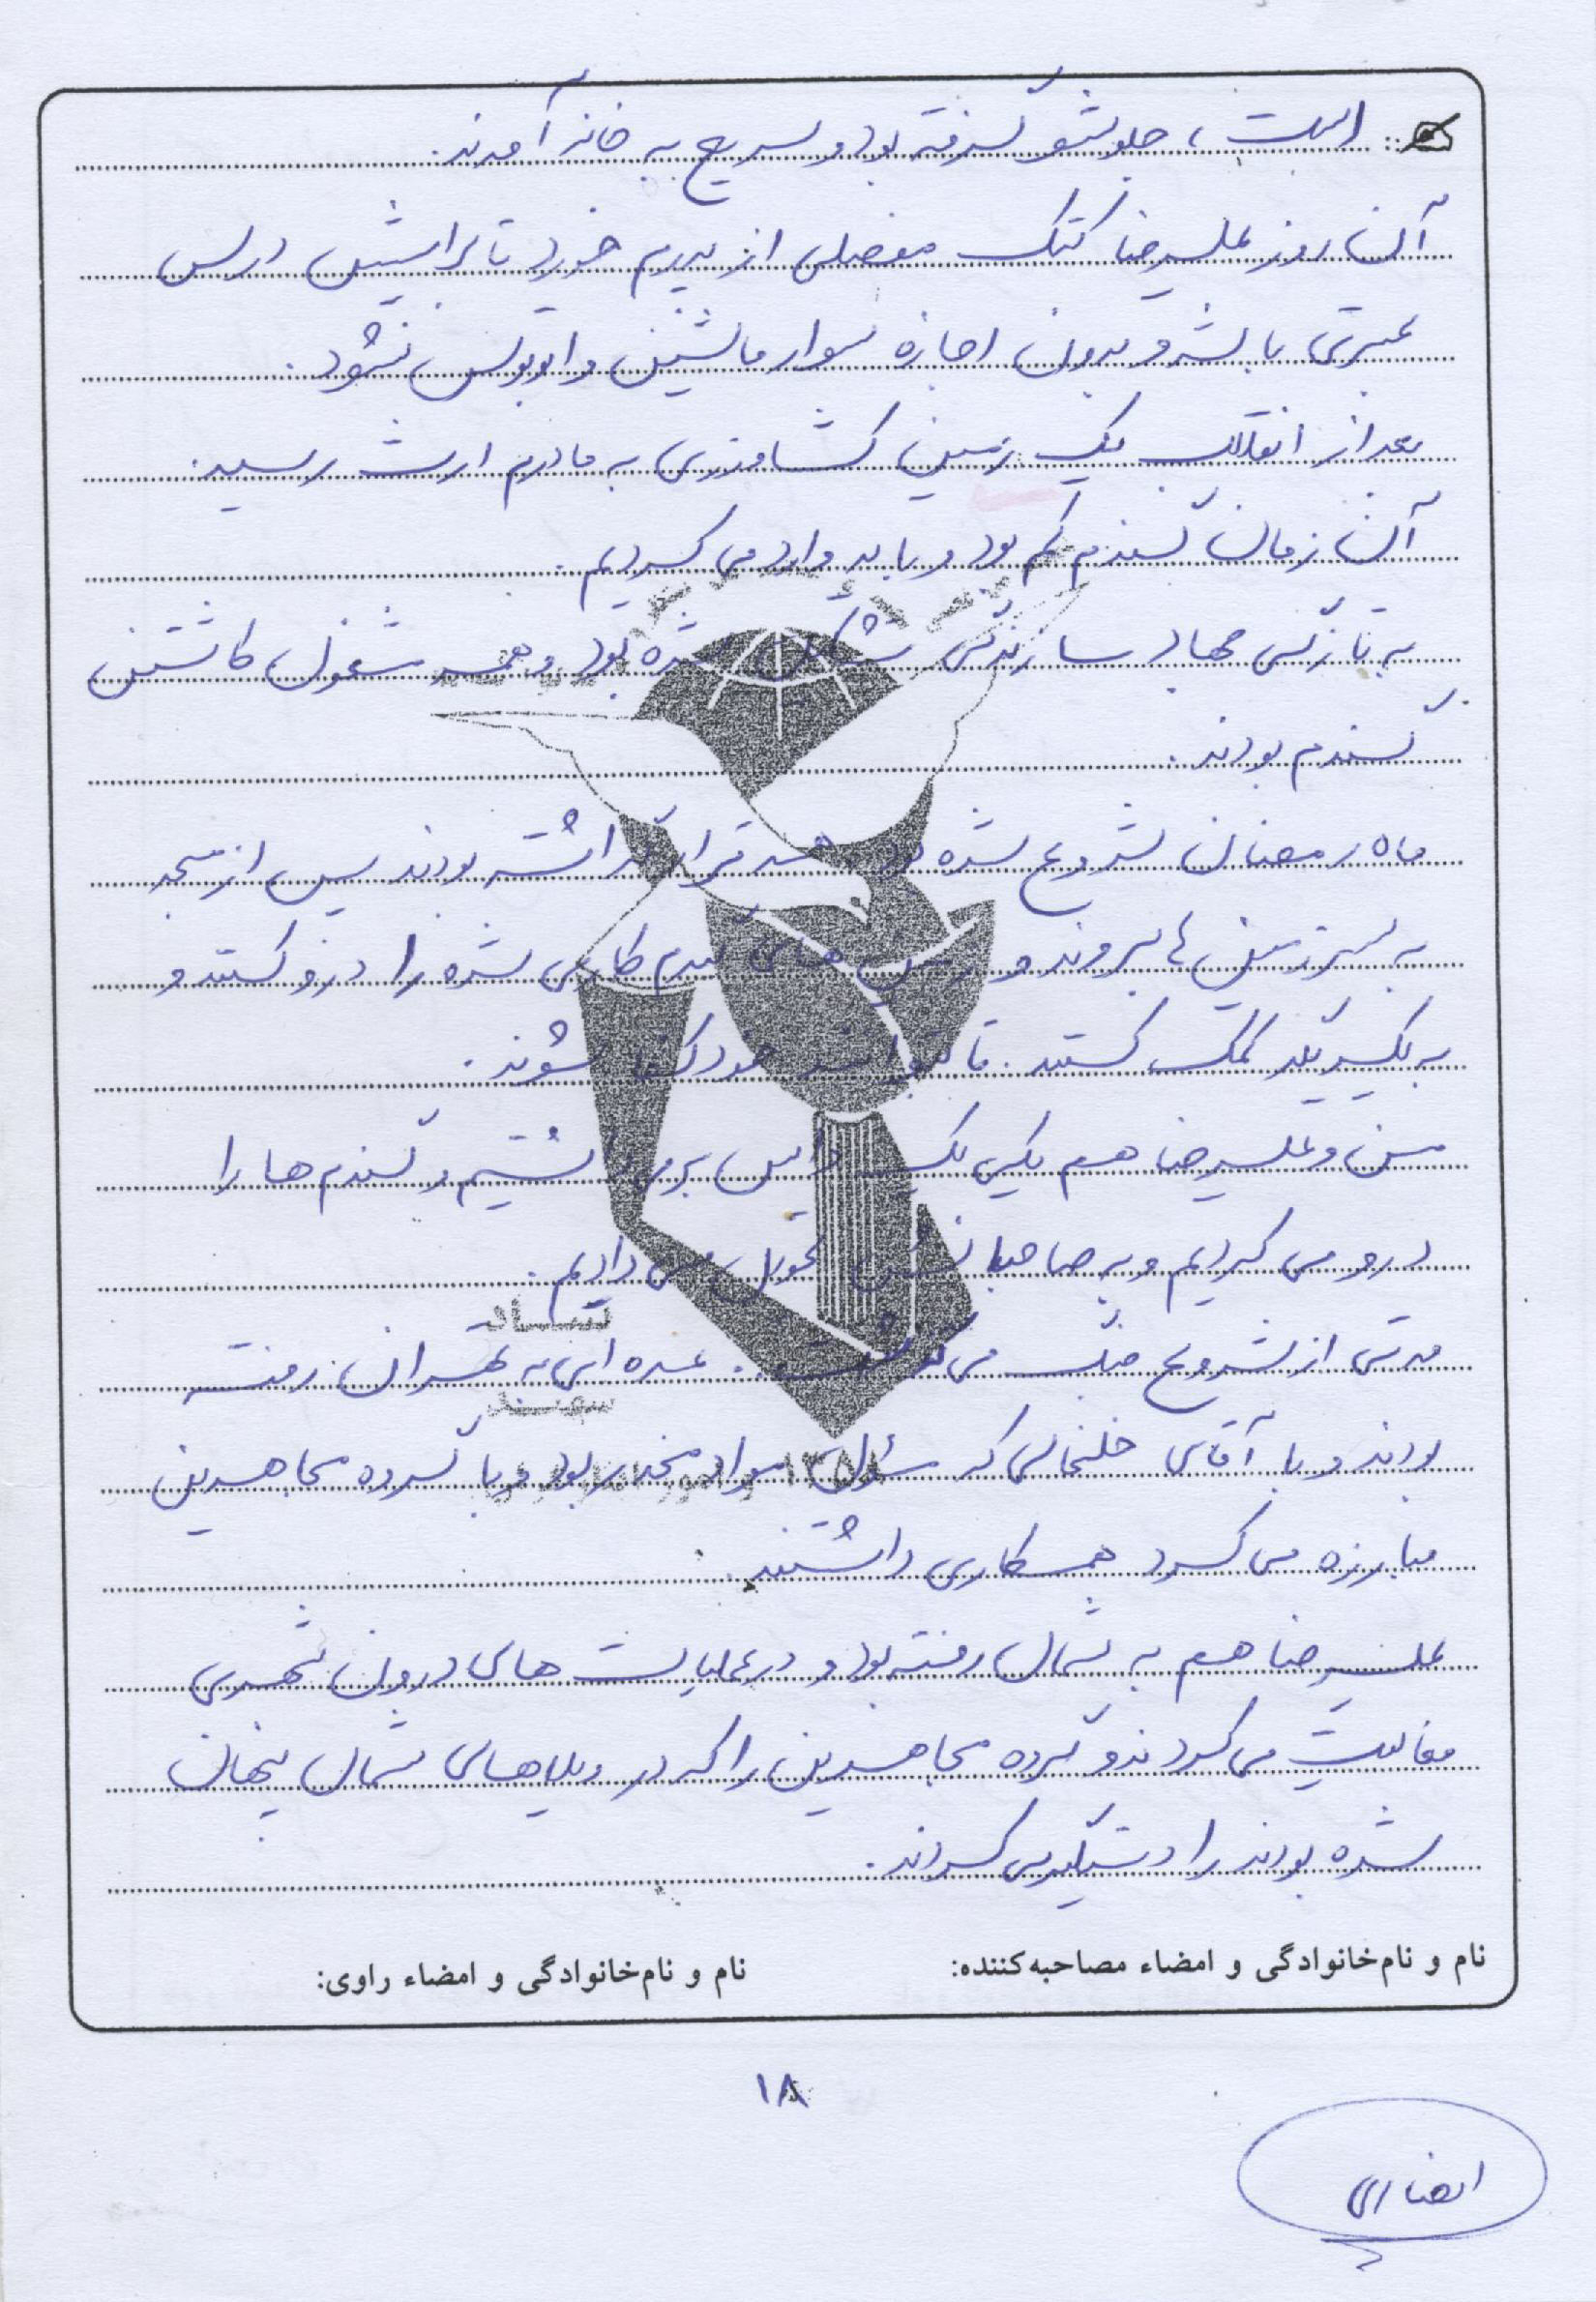 است، جلویشو گرفته بود و سریع به خانه آمدند.
آن روز علیرضا کتک مفصلی از پدرم خورد تا برایش درس
عبرتی باشد و بدون اجازه سوار ماشین و اتوبوس نشود.
بعد از انقلاب یک زمین کشاورزی به مادرم ارث رسید.
آن زمان گندم کم بود و باید وارد می کردیم.
به تازگی جهاد سازندگی تشکیل شده بود و همه مشغول کاشتن
گندم بودند.
ماه رمضان شروع شده بود همه قرار گذاشته بودند پس از مسجد
به سر زمین ها بروند و زمین های گندم کاری شده را درو کنند و
به یکدیگر کمک کنند. تا بتوانند خودکفا شوند.
من و علیرضا هم یکی یک داس برمی داشتیم و گندم ها را
درو می کردیم و به صاحبانشان تحویل می دادیم.
مدتی از شروع جنگ می گذشت. عده ای به تهران رفته
بودند و با آقای خلخالی که مسئول مواد مخدر بود و با گروه مجاهدین
مبارزه می کرد همکاری داشتند.
علیرضا هم به شمال رفته بود و در عملیات های درون شهری
فعالیت می کردند و گروه مجاهدین را که در ویلاهای شمال پنهان
شده بودند را دستگیر می کردند.
نام و نام‌خانوادگی و امضاء مصاحبه‌کننده:
نام و نام‌خانوادگی و امضاء راوی:
۱۸